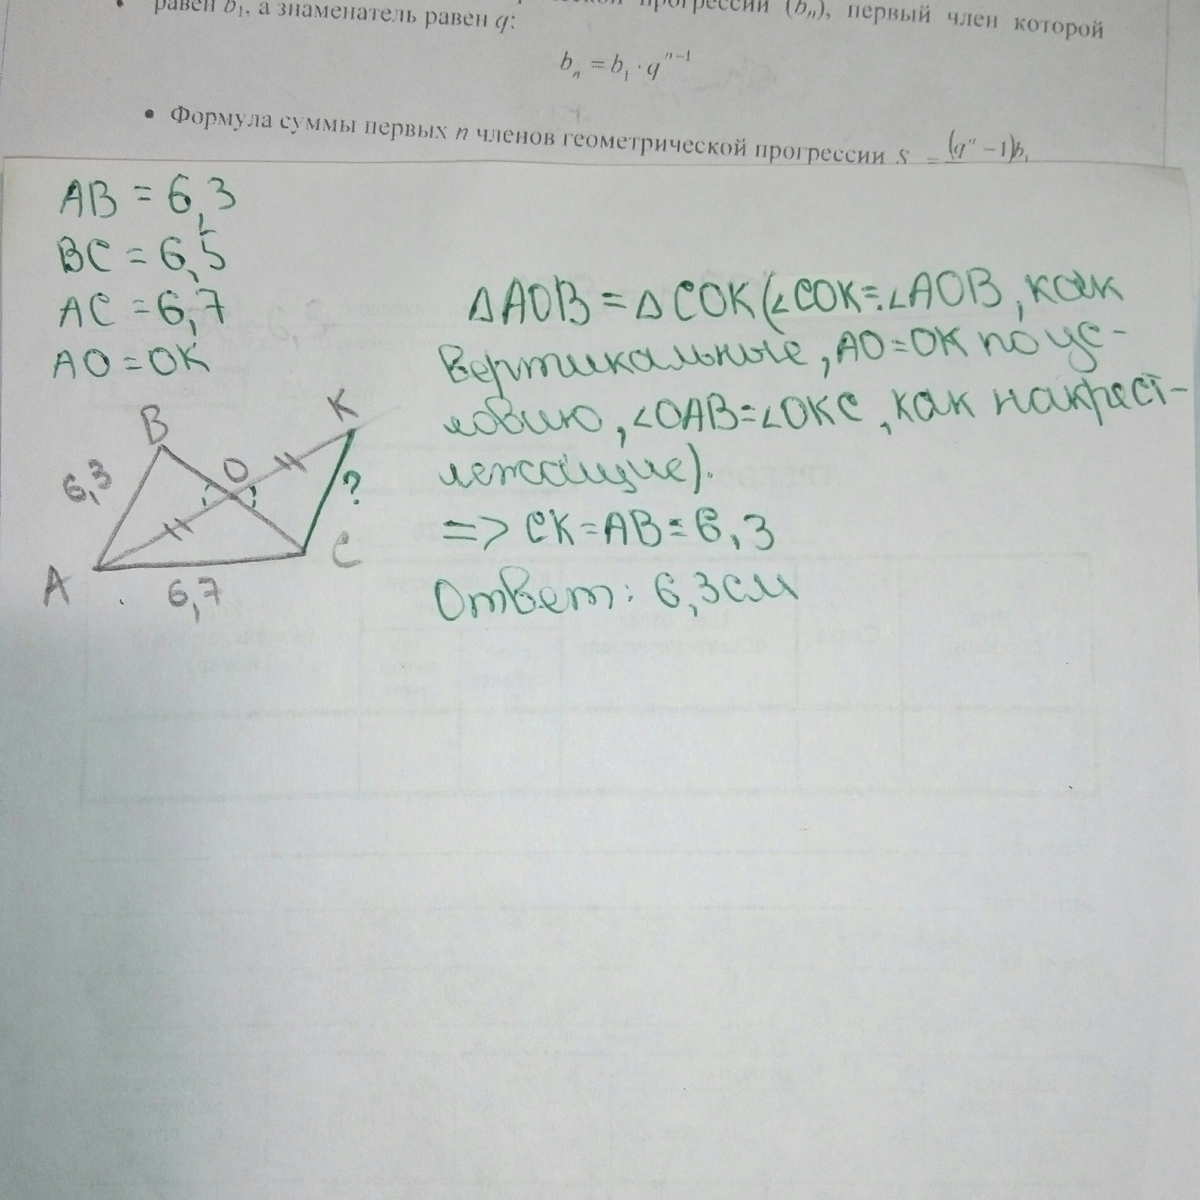 равен b₁, а знаменатель равен q:
прогрессии (bₙ), первый член которой
bₙ = b₁ · qⁿ⁻¹
• Формула суммы первых n членов геометрической прогрессии S = (qⁿ −1)b₁
AB = 6,3
BC = 6,5
AC = 6,7
AO = OK
B
K
O
6,3
?
A
C
6,7
ΔAOB = ΔCOK (∠COK = ∠AOB, как
вертикальные, AO=OK по ус-
ловию, ∠OAB=∠OKC, как накрест-
лежащие).
=> CK = AB = 6,3
Ответ: 6,3см